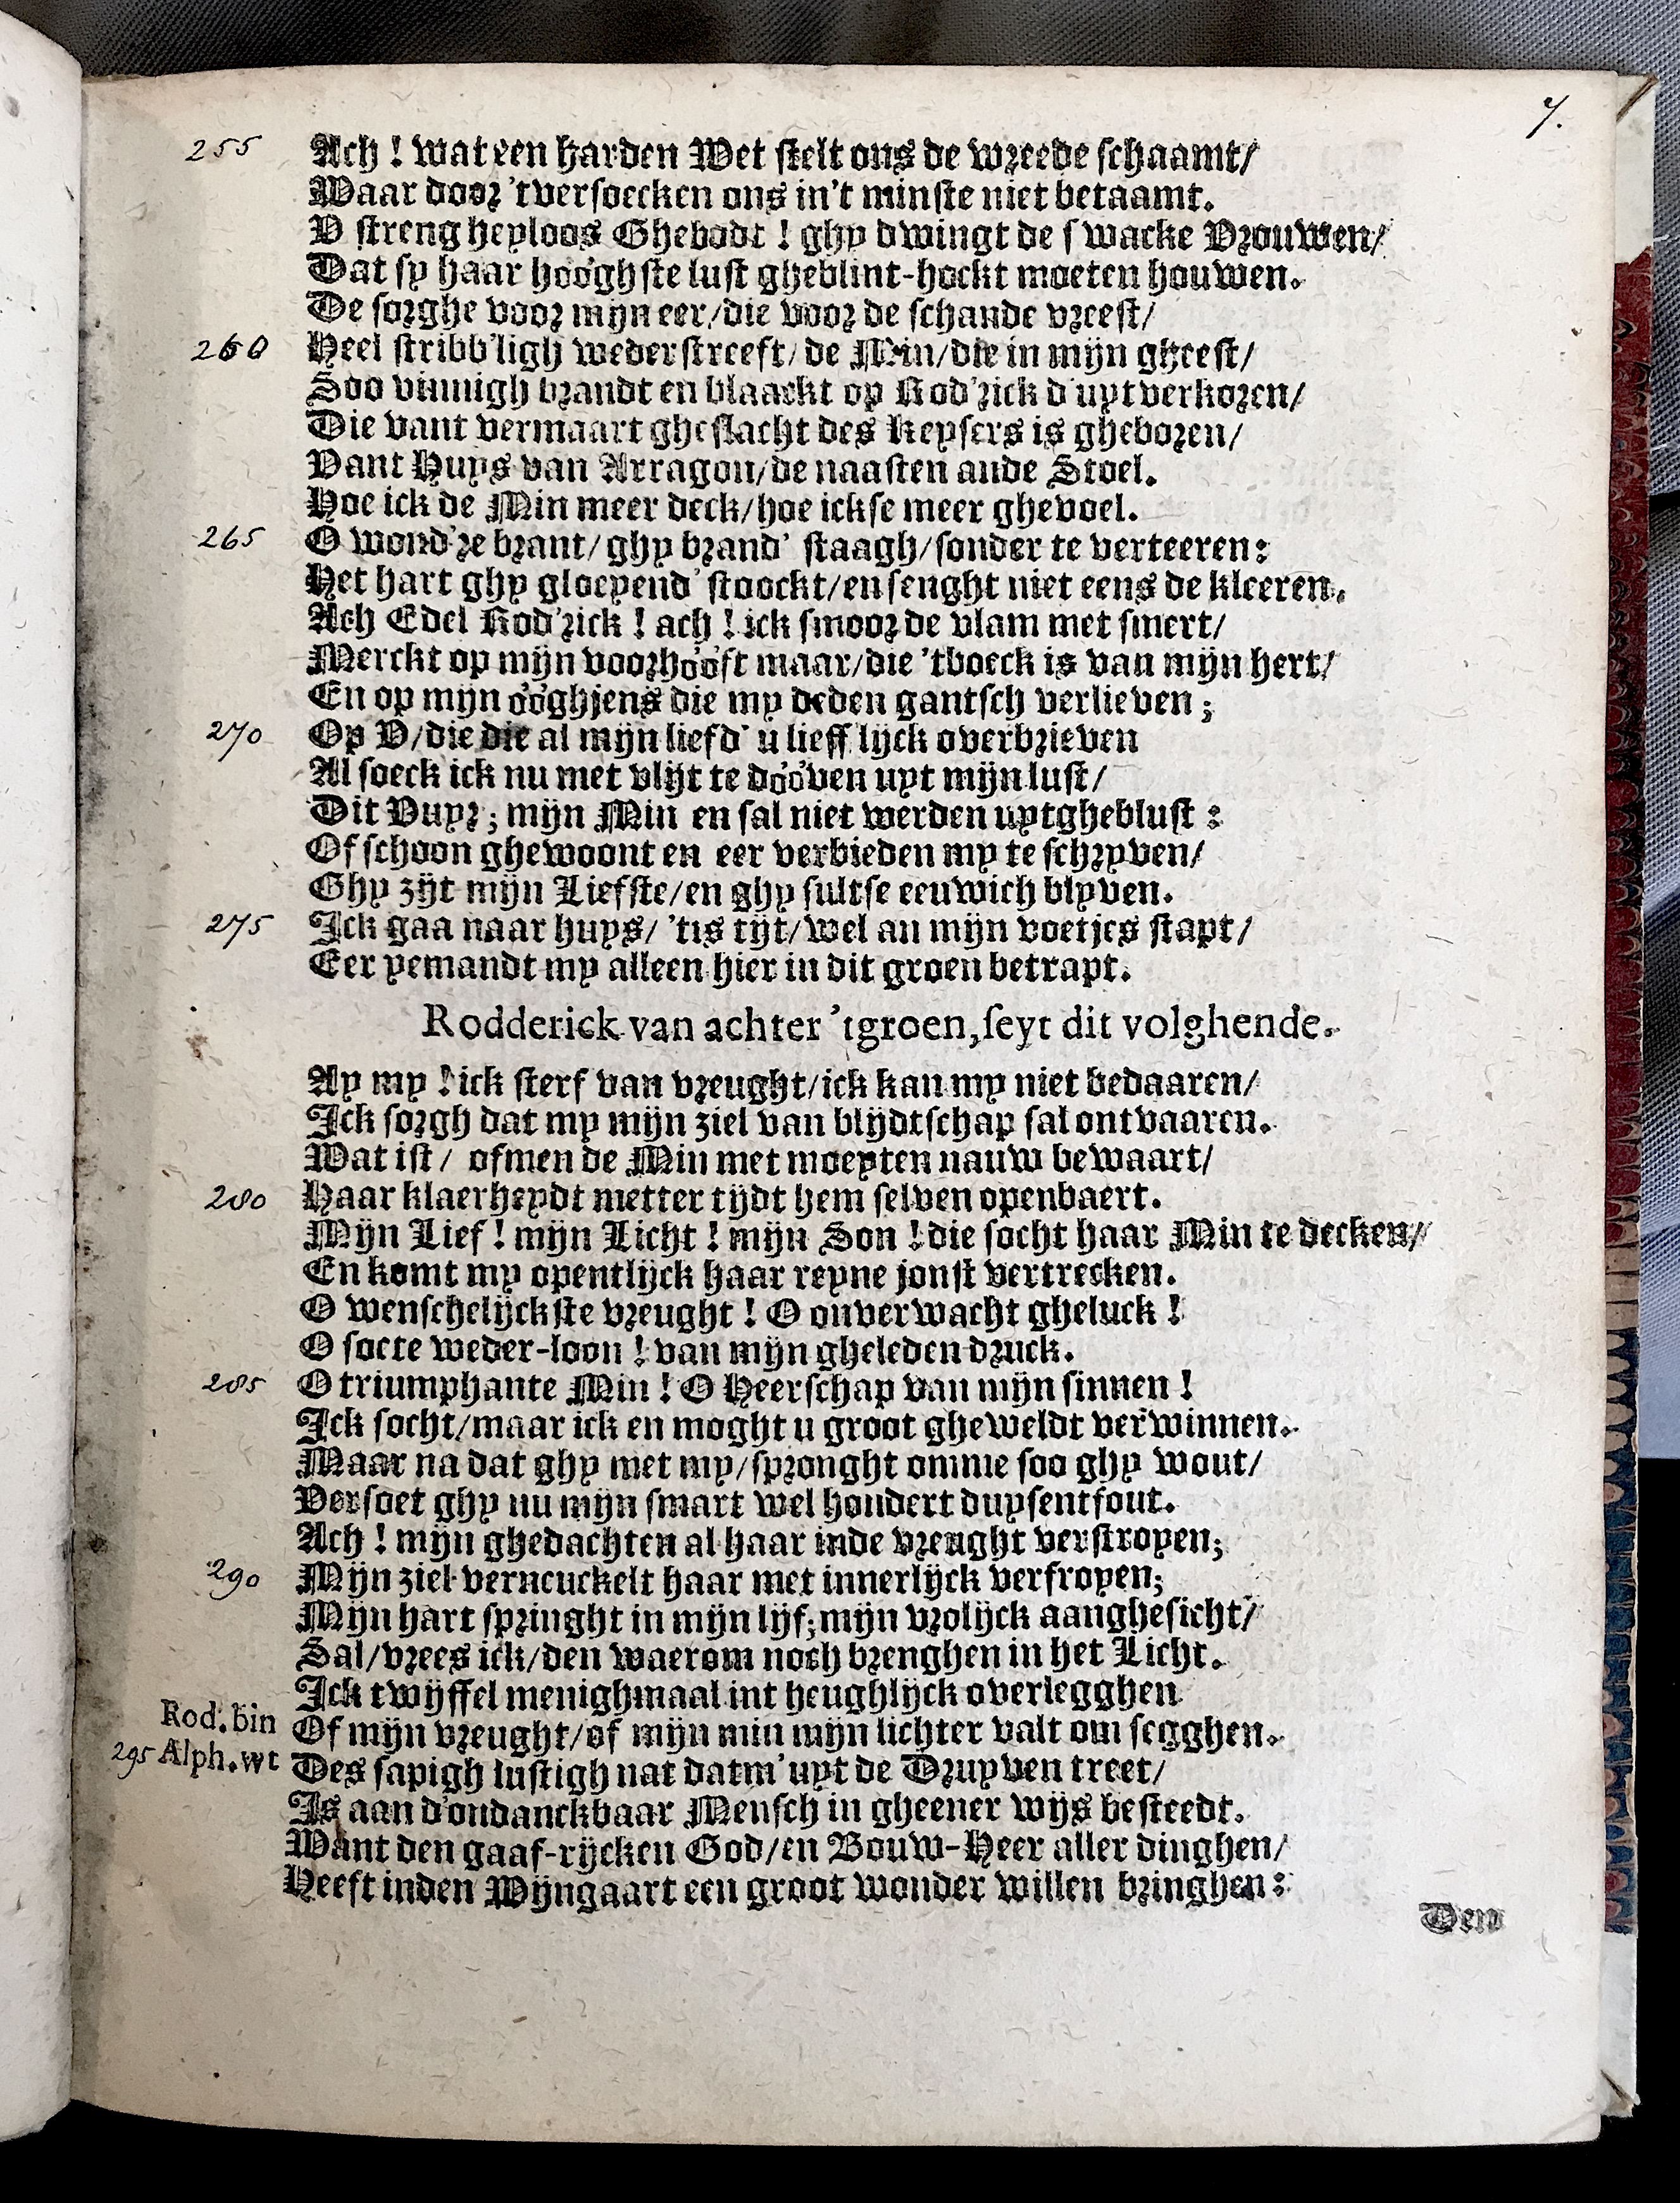 7.
255 Ach! wat een harden Wet stelt ons de wreede schaamt/
Waar door 't versoecken ons in't minste niet betaamt.
O streng heyloos Ghebodt! ghy dwingt de swacke Vrouwen/
Dat sy haar hóóghste lust gheblint-hockt moeten houwen.
De sorghe voor mijn eer/die voor de schande vreest/
260 Heel stribb'ligh wederstreeft/de Min/die in mijn gheest/
Soo vinnigh brandt en blaackt op Rod'rick d'uytverkoren/
Die vant vermaart gheslacht des Keysers is gheboren/
Vant Huys van Arragon/de naasten ande Stoel.
Hoe ick de Min meer deck/hoe ickse meer ghevoel.
265 O wond're brant/ghy brand' staagh/sonder te verteeren:
Het hart ghy gloeyend' stoockt/en senght niet eens de kleeren.
Ach Edel Rod'rick! ach! ick smoor de vlam met smert/
Merckt op mijn voorhóóft maar/die 'tboeck is van mijn hert/
En op mijn óóghjens die my deden gantsch verlieven;
270 Op V/die die al mijn liefd' u lieff'lijck overbrieven
Al soeck ick nu met vlijt te dóóven uyt mijn lust/
Dit Vuyr; mijn Min en sal niet werden uytgheblust:
Of schoon ghewoont en eer verbieden my te schryven/
Ghy zijt mijn Liefste/en ghy sultse eeuwich blyven.
275 Ick gaa naar huys/ 'tis tijt/wel an mijn voetjes stapt/
Eer yemandt my alleen hier in dit groen betrapt.
Rodderick van achter 'tgroen, seyt dit volghende.
Ay my! ick sterf van vreught/ick kan my niet bedaaren/
Ick sorgh dat my mijn ziel van blijdtschap sal ontvaaren.
Wat ist/ ofmen de Min met moeyten nauw bewaart/
280 Haar klaerheydt metter tijdt hem selven openbaert.
Mijn Lief! mijn Licht! mijn Son! die socht haar Min te decken/
En komt my opentlijck haar reyne jonst vertrecken.
O wenschelijckste vreught! O onverwacht gheluck!
O soete weder-loon! van mijn gheleden druck.
285 O triumphante Min! O Heerschap van mijn sinnen!
Ick socht/maar ick en moght u groot gheweldt verwinnen.
Maar na dat ghy met my/spronght omme soo ghy wout/
Versoet ghy nu mijn smart wel hondert duysentfout.
Ach! mijn ghedachten al haar inde vreught verstroyen;
290 Mijn ziel verneuckelt haar met innerlijck verfroyen;
Mijn hart springht in mijn lijf; mijn vrolijck aanghesicht/
Sal/vrees ick/den waerom noch brenghen in het Licht.
Ick twijffel menighmaal int heughlijck overlegghen
Rod. bin Of mijn vreught/of mijn min mijn lichter valt om segghen.
295 Alph. wt Des sapigh lustigh nat datm' uyt de Druyven treet/
Is aan d'ondanckbaar Mensch in gheener wijs besteedt.
Want den gaaf-rijcken God/en Bouw-Heer aller dinghen/
Heeft inden Wijngaart een groot wonder willen bringhen:
Den